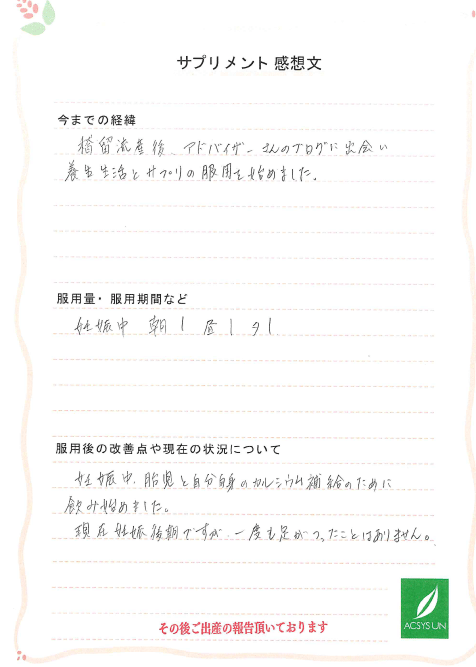 サプリメント 感想文
今までの経緯
稽留流産後、アドバイザーさんのブログに出会い
養生生活とサプリの服用を始めました。
服用量・服用期間など
妊娠中 朝1 昼1 夕1
服用後の改善点や現在の状況について
妊娠中、胎児と自分自身のカルシウム補給のために
飲み始めました。
現在妊娠後期ですが、一度も足がつったことはありません。
ACSYSUN
その後ご出産の報告頂いております